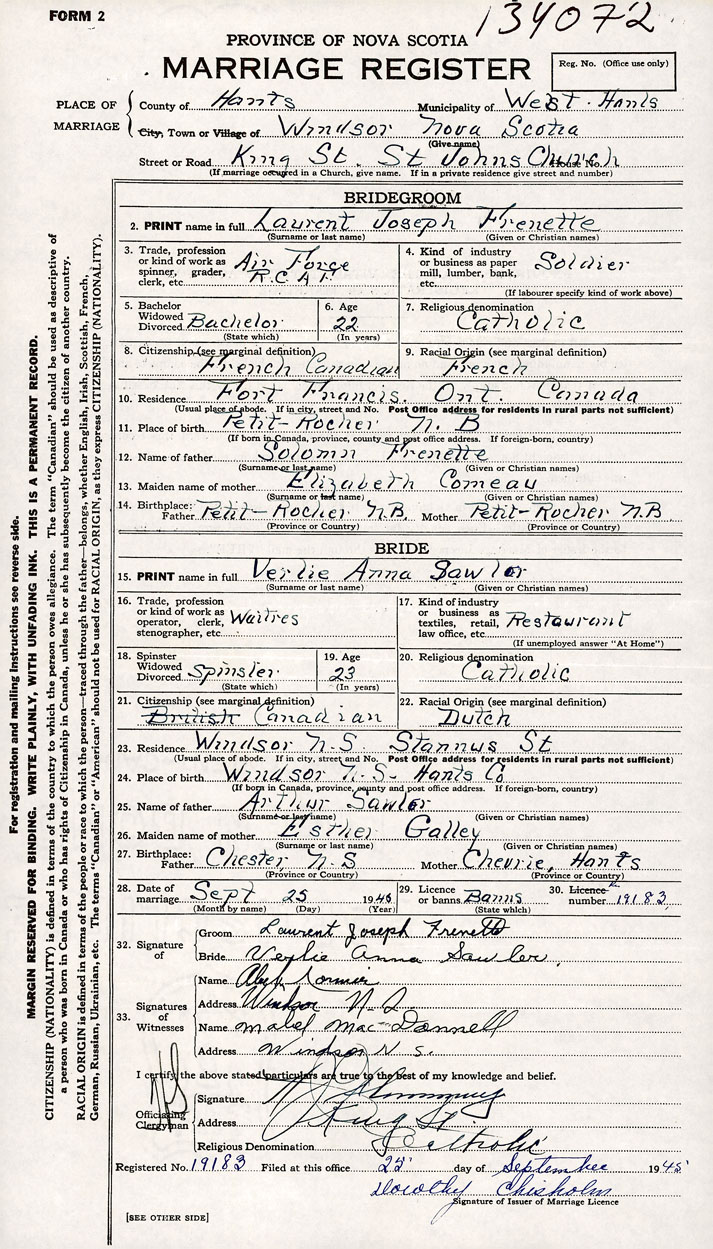 FORM 2
134072
PROVINCE OF NOVA SCOTIA
MARRIAGE REGISTER
Reg. No. (Office use only)
PLACE OF MARRIAGE
County of Hants Municipality of West Hants
City, Town or Village of Windsor Nova Scotia
(Give name)
Street or Road King St. St Johns Church House No.
(If marriage occupied in a Church, give name. If in a private residence give street and number)
BRIDEGROOM
2. PRINT name in full Laurent Joseph Frenette
(Surname or last name) (Given or Christian names)
3. Trade, profession or kind of work as spinner, grader, clerk, etc. Air Force R.C.A.F.
4. Kind of industry or business as paper mill, lumber, bank, etc. Soldier
(If labourer specify kind of work above)
5. Bachelor Widowed Divorced Bachelor
(State which)
6. Age 22
(In years)
7. Religious denomination Catholic
8. Citizenship (see marginal definition) French Canadian
9. Racial Origin (see marginal definition) French
10. Residence Fort Francis. Ont. Canada
(Usual place of abode. If in city, street and No. Post Office address for residents in rural parts not sufficient)
11. Place of birth Petit-Rocher N.B
(If born in Canada, province, county and post office address. If foreign-born, country)
12. Name of father Solomn Frenette
(Surname or last name) (Given or Christian names)
13. Maiden name of mother Elizabeth Comeau
(Surname or last name) (Given or Christian names)
14. Birthplace: Father Petit-Rocher N.B. Mother Petit-Rocher N.B
(Province or Country) (Province or Country)
BRIDE
15. PRINT name in full Verlie Anna Sawler
(Surname or last name) (Given or Christian names)
16. Trade, profession or kind of work as operator, clerk, stenographer, etc. Waitres
17. Kind of industry or business as textiles, retail, law office, etc. Restaurant
(If unemployed answer "At Home")
18. Spinster Widowed Divorced Spinster
(State which)
19. Age 23
(In years)
20. Religious denomination Catholic
21. Citizenship (see marginal definition) British Canadian
22. Racial Origin (see marginal definition) Dutch
23. Residence Windsor N.S. Stannus St
(Usual place of abode. If in city, street and No. Post Office address for residents in rural parts not sufficient)
24. Place of birth Windsor N.S- Hants Co
(If born in Canada, province, county and post office address. If foreign-born, country)
25. Name of father Arthur Sawler
(Surname or last name) (Given or Christian names)
26. Maiden name of mother Esther Galley
(Surname or last name) (Given or Christian names)
27. Birthplace: Father Chester N.S Mother Chevrie, Hants
(Province or Country) (Province or Country)
28. Date of marriage Sept 25 1945
(Month by name) (Day) (Year)
29. Licence or banns Banns
(State which)
30. Licence number 19183
32. Signature of
Groom Laurent Joseph Frenette
Bride Verlie Anna Sawler.
33. Signatures of Witnesses
Name Cormier
Address Windsor N.S.
Name Mabel Mac-Donnell
Address Windsor N.S.
I certify the above stated particulars are true to the best of my knowledge and belief.
Officiating Clergyman
Signature
Address King St.
Religious Denomination Catholic
Registered No. 19183 Filed at this office 25 day of September 1945
Dorothy Chisholm
Signature of Issuer of Marriage Licence
[SEE OTHER SIDE]
For registration and mailing instructions see reverse side.
MARGIN RESERVED FOR BINDING. WRITE PLAINLY, WITH UNFADING INK. THIS IS A PERMANENT RECORD.
CITIZENSHIP (NATIONALITY) is defined in terms of the country to which the person owes allegiance. The term "Canadian" should be used as descriptive of
a person who was born in Canada or who has rights of Citizenship in Canada, unless he or she has subsequently become the citizen of another country.
RACIAL ORIGIN is defined in terms of the people or race to which the person—traced through the father—belongs, whether English, Irish, Scottish, French,
German, Russian, Ukrainian, etc. The terms "Canadian" or "American" should not be used for RACIAL ORIGIN, as they express CITIZENSHIP (NATIONALITY).